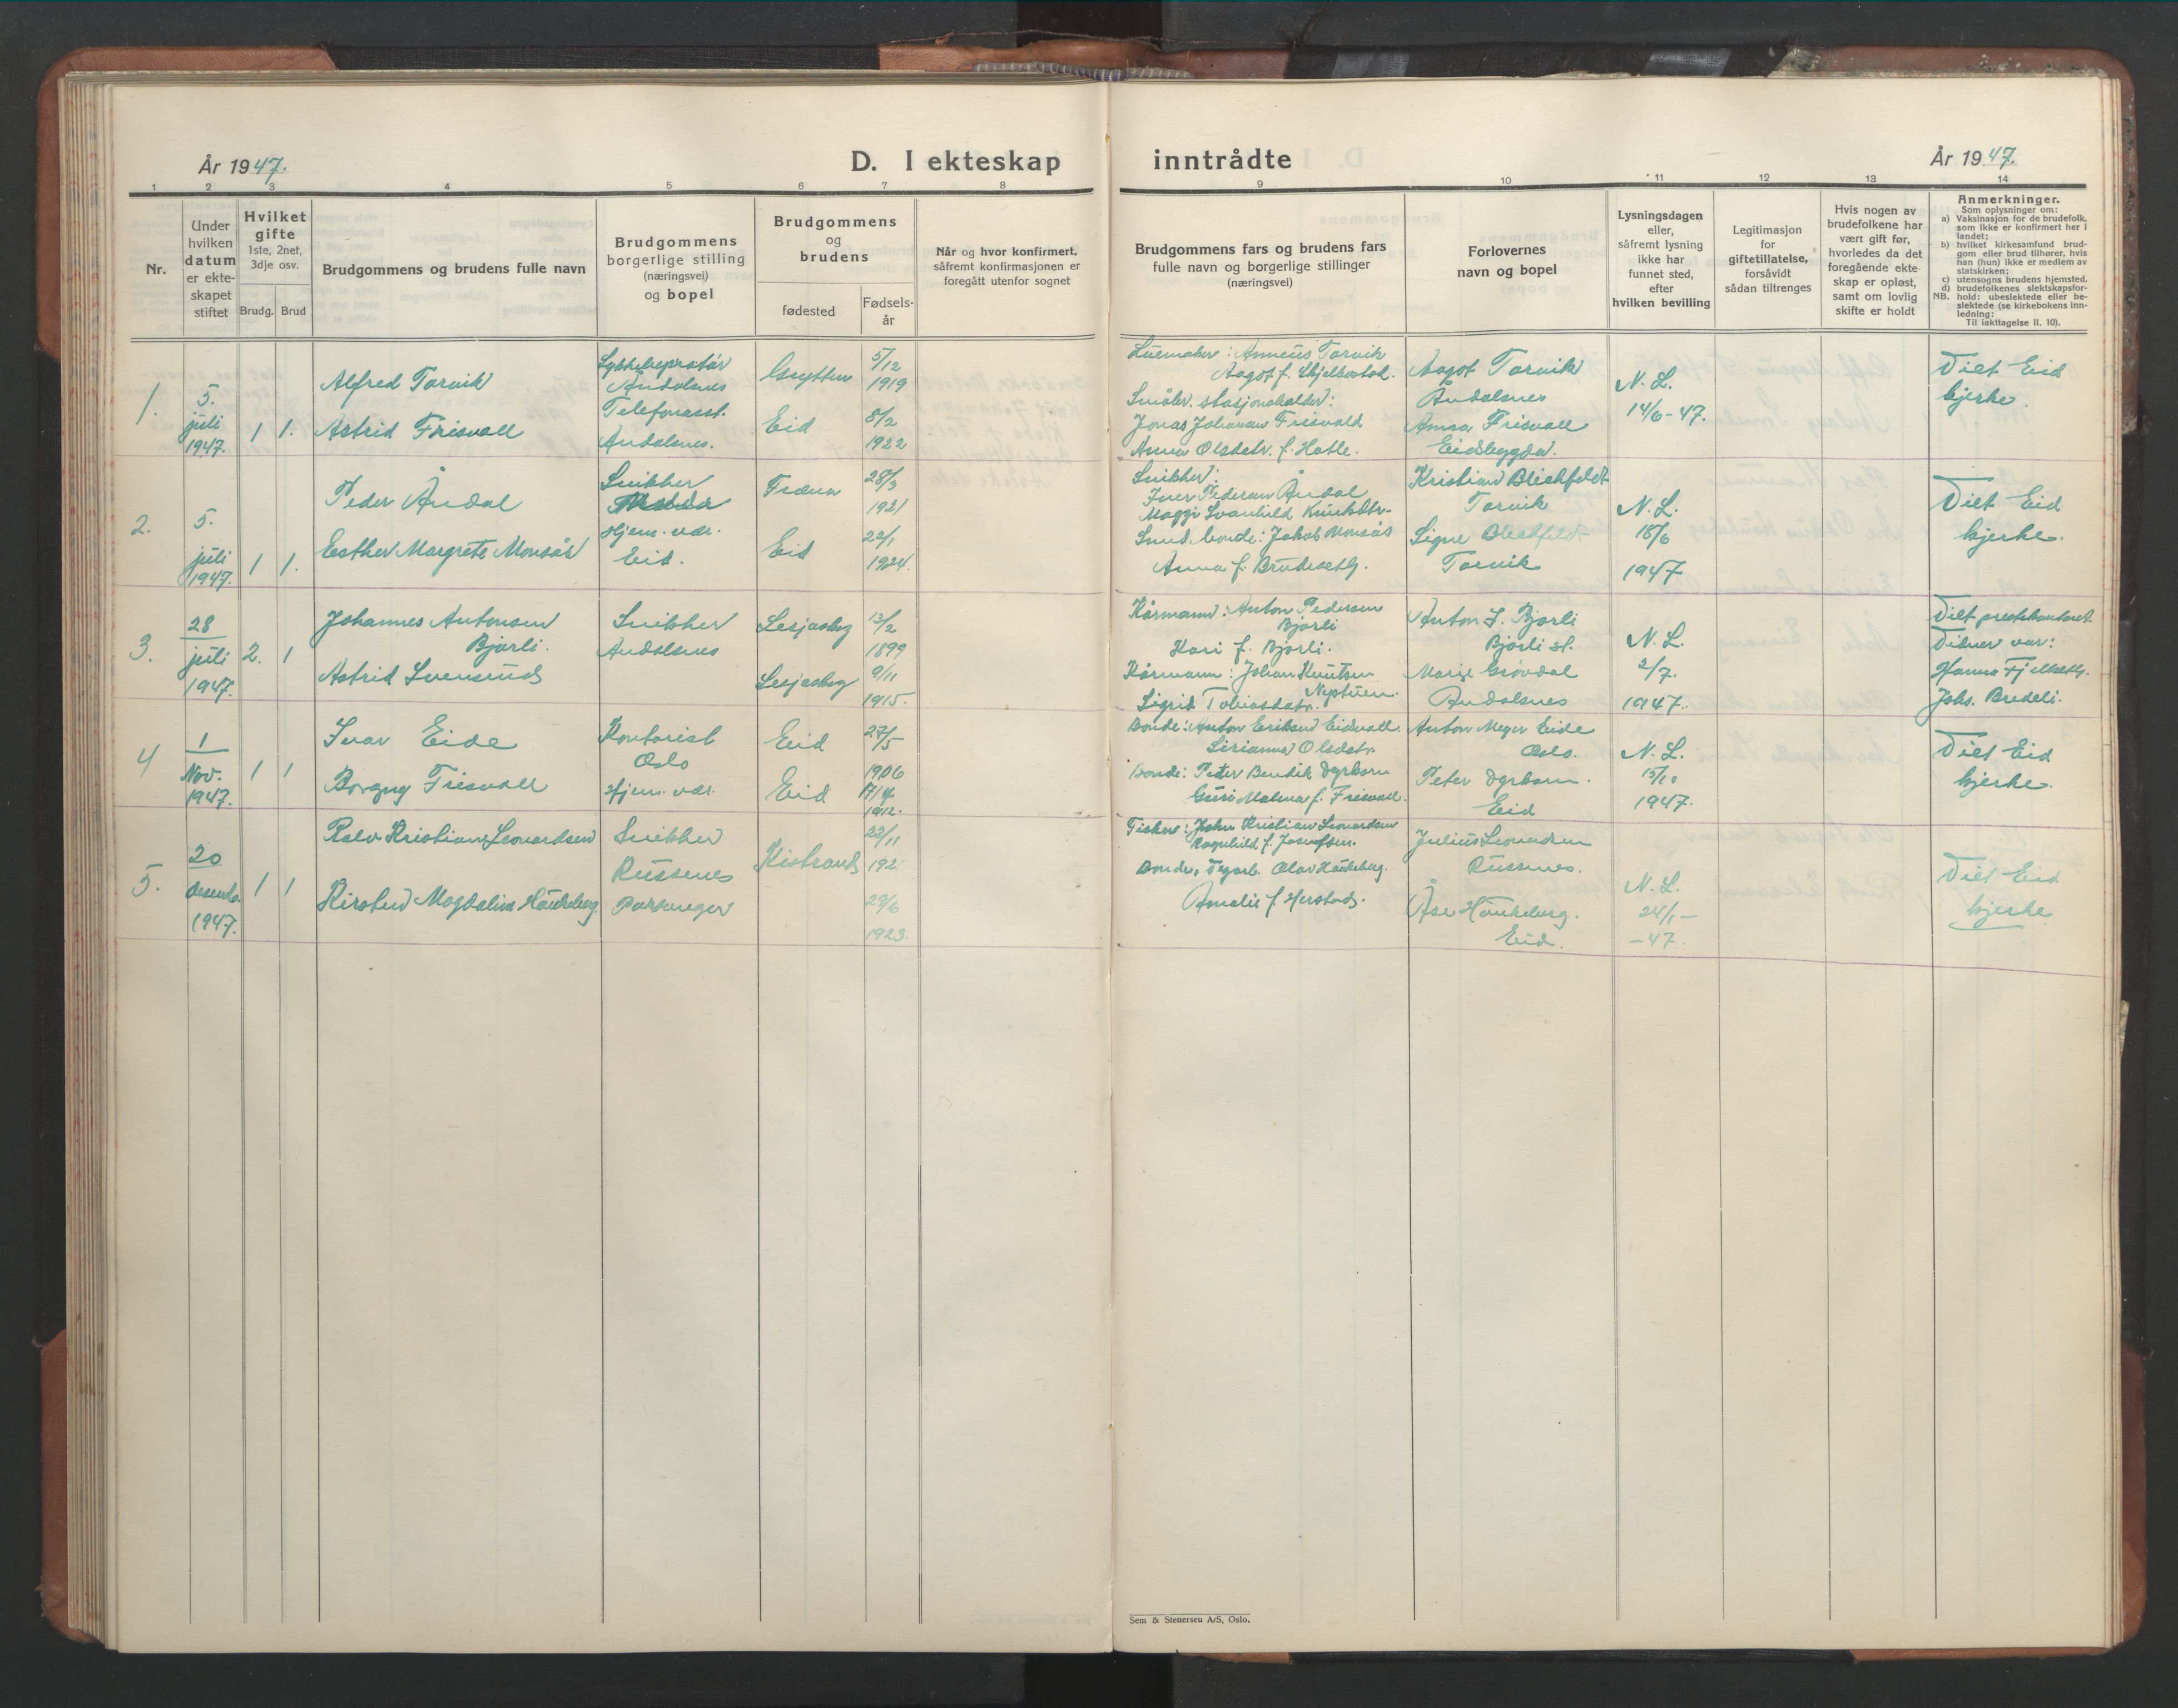 År 1947.
D. I ekteskap inntrådte
År 1947.
1 2 3 4 5 6 7 8 9 10 11 12 13 14
Nr.
Under
hvilken
datum
er ekte-
skapet
stiftet
Hvilket
gifte
1ste, 2net,
3dje osv.
Brudg. Brud
Brudgommens og brudens fulle navn
Brudgommens
borgerlige stilling
(næringsvei)
og bopel
Brudgommens
og
brudens
fødested
Fødsels-
år
Når og hvor konfirmert,
såfremt konfirmasjonen er
foregått utenfor sognet
Brudgommens fars og brudens fars
fulle navn og borgerlige stillinger
(næringsvei)
Forlovernes
navn og bopel
Lysningsdagen
eller,
såfremt lysning
ikke har
funnet sted,
efter
hvilken bevilling
Legitimasjon
for
giftetillatelse,
forsåvidt
sådan tiltrenges
Hvis nogen av
brudefolkene har
vært gift før,
hvorledes da det
foregående ekte-
skap er opløst,
samt om lovlig
skifte er holdt
Anmerkninger.
Som oplysninger om:
a) Vaksinasjon for de brudefolk,
som ikke er konfirmert her i
landet;
b) hvilket kirkesamfund brud-
gom eller brud tilhører, hvis
han (hun) ikke er medlem av
statskirken;
c) utensogns brudens hjemsted.
d) brudefolkenes slektskapsfor-
NB. hold: ubeslektede eller be-
slektede (se kirkebokens inn-
ledning:
Til iakttagelse II. 10).
1.
5.
juli
1947.
1 1.
Alfred Torvik
Astrid Frisvoll
Åndalsnes
Telefonasst.
Åndalsnes.
Grytten
Eid
5/12
1919
8/2
1922
Anneus Torvik
Aagot f. Skjelbostad.
Småbr. stasjonsholder:
Jonas Johanson Frisvold
Anna Olsdatr. f. Hatle.
Aagot Torvik
Åndalsnes
Anna Frisvoll
Eidsbygda.
N. L.
14/6-47.
Viet Eid
kjerke.
2.
5.
juli
1947.
1 1.
Peder Åndal
Esther Margrete Monsås
Snikker
Hjem. vær.
Eid.
Fræna
Eid
28/3
1921
22/1
1924.
Snikker:
Iver Pederson Åndal
Maggi Svanhild Knutsdtr-
Smed. bonde: Jakob Monsås
Anna f. Brudeseth.
Kristian Blichfeldt
Torvik
Signe Blichfeldt
Torvik
N. L.
18/6
1947
Viet Eid
kjerke.
3.
28
juli
1947.
2. 1
Johannes Antonsen
Bjorli.
Astrid Svensrud
Snikker
Åndalsnes
Lesjaskog
Lesjaskog
13/2
1899
9/11
1915.
Kårmann: Anton Pedersen
Bjorli
Kari f. Bjorli.
Kårmann: Johan Knutsen
Neptuen.
Sigrid Tobiasdatr.
Anton J. Bjorli
Bjorli st.
Marie Grovdal
Åndalsnes
N. L.
2/7.
1947.
Viet prestekontoret.
Vitner var:
Hanna Fjellseth.
Johs. Bredeli.
4
1
Nov.
1947.
1 1
Ivar Eide
Borgny Frisvoll
Kontorist
Oslo
Hjem. vær.
Eid
Eid
27/5
1906
17/4
1912.
Bonde: Anton Erikson Eidsvoll.
Sirianna Olsdatr.
Bonde: Peter Bendik Dyrkorn
Guri Malena f. Frisvoll.
Anton Meyer Eide
Oslo.
Peter Dyrkorn.
Eid
N. L.
15/10
1947.
Viet Eid
kjerke.
5.
20
desemb.
1947.
1 1
Rolv Kristian Leonardsen
Kirsten Magdalina Haukeberg.
Snikker
Russenes
Porsanger
Kistrand
22/11
192
29/6
1923.
Fisker: John Kristian Leonardsen
Ragnhild f. Josefsen.
Bonde, Olav Haukeberg.
Amalie f. Herstad.
Julius Leonardsen
Russenes.
Åse Haukeberg.
Eid.
N. L.
24/1-
-47.
Viet Eid
kjerke
Sem & Stenersen A/S, Oslo.